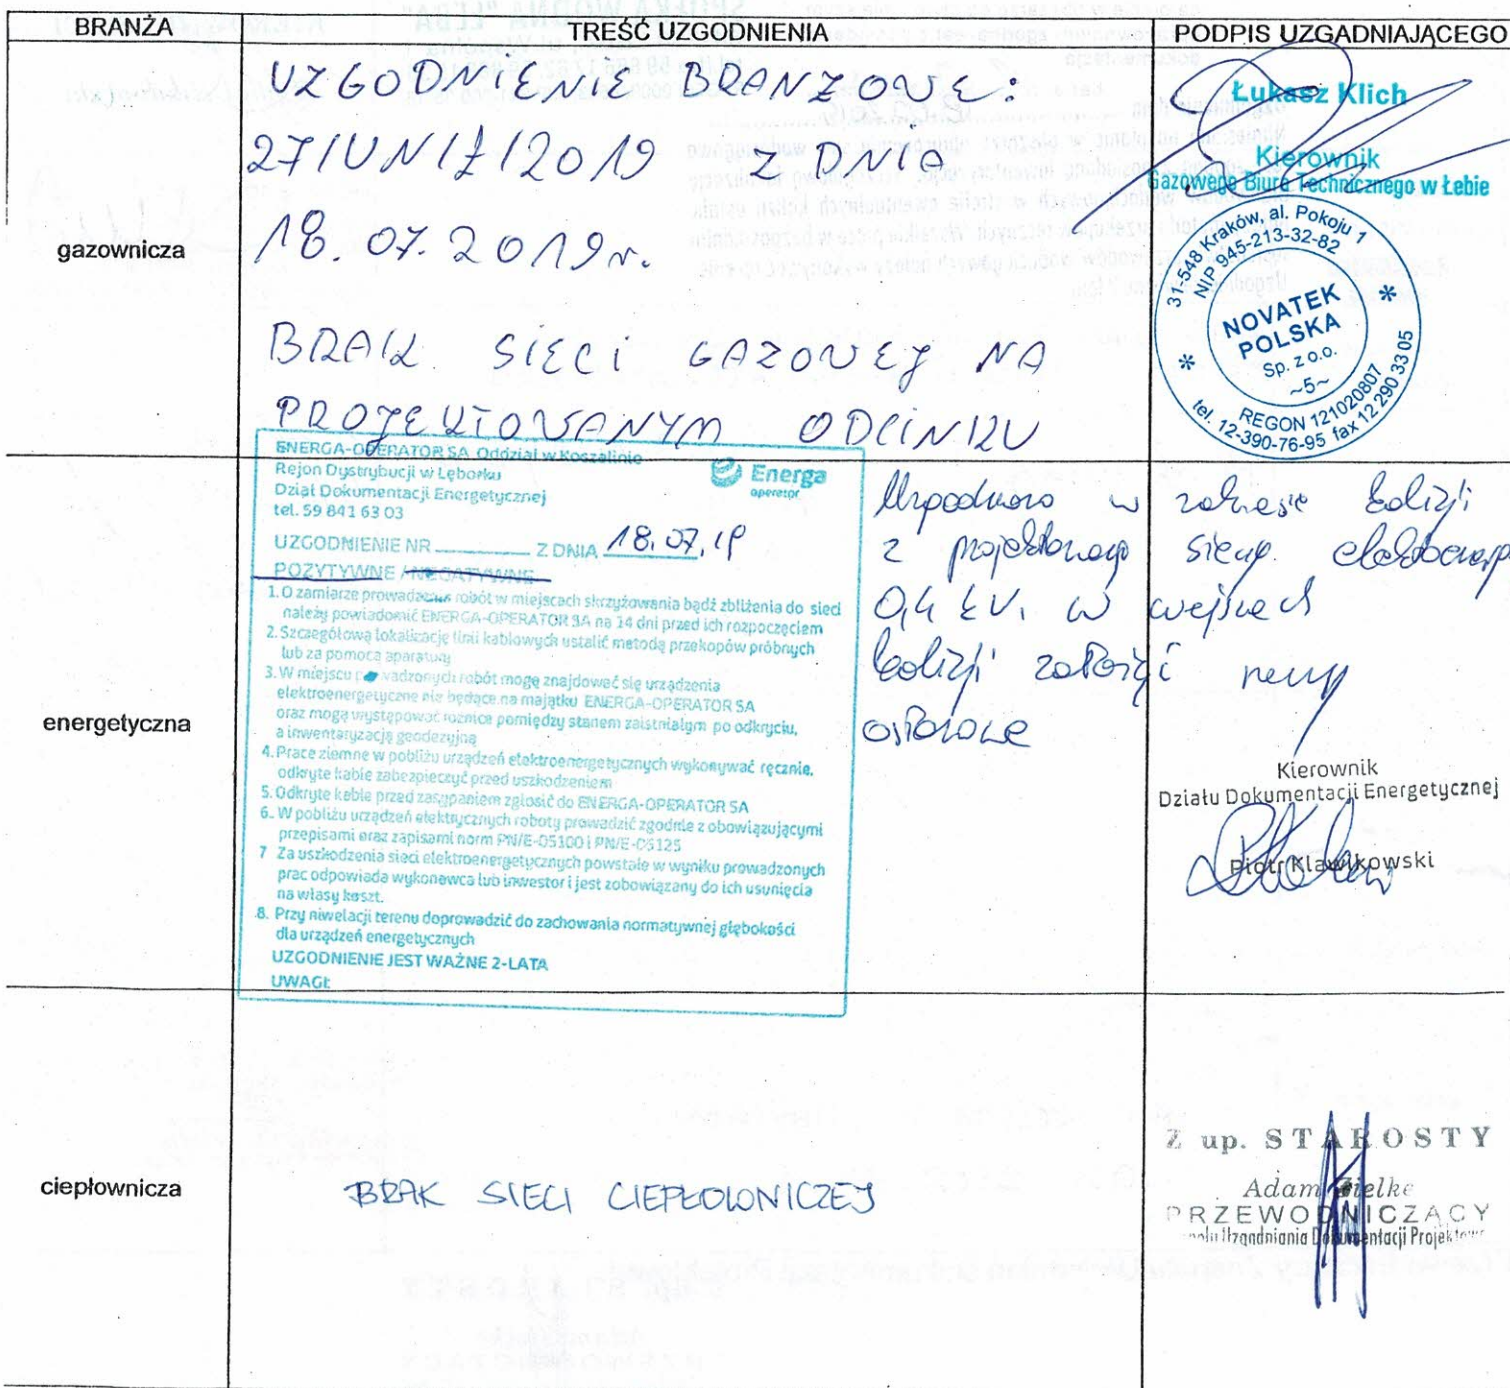 BRANŻA
TREŚĆ UZGODNIENIA
PODPIS UZGADNIAJĄCEGO
gazownicza
UZGODNIENIE BRANŻOWE:
27/UN/Ł/2019 Z DNIA
18.07.2019r.
BRAK SIECI GAZOWEJ NA
PROJEKTOWANYM ODCINKU
Łukasz Klich
Kierownik
Gazowego Biura Technicznego w Łebie
31-548 Kraków, al. Pokoju 1
NIP 945-213-32-82
NOVATEK
POLSKA
Sp. z o.o.
~5~
REGON 121020807
tel. 12-390-76-95 fax 12 290 33 05
energetyczna
ENERGA-OPERATOR SA Oddział w Koszalinie
Rejon Dystrybucji w Lęborku
Dział Dokumentacji Energetycznej
tel. 59 841 63 03
Energa
operator
UZGODNIENIE NR Z DNIA 18.07.19
POZYTYWNE / NEGATYWNE
1. O zamiarze prowadzenia robót w miejscach skrzyżowania bądź zbliżenia do sieci
należy powiadomić ENERGA-OPERATOR SA na 14 dni przed ich rozpoczęciem
2. Szczegółową lokalizację linii kablowych ustalić metodą przekopów próbnych
lub za pomocą aparatury
3. W miejscu prowadzonych robót mogę znajdować się urządzenia
elektroenergetyczne nie będące na majątku ENERGA-OPERATOR SA
oraz mogą występować różnice pomiędzy stanem zaistniałym po odkryciu,
a inwentaryzacją geodezyjną
4. Prace ziemne w pobliżu urządzeń elektroenergetycznych wykonywać ręcznie,
odkryte kable zabezpieczyć przed uszkodzeniem
5. Odkryte kable przed zasypaniem zgłosić do ENERGA-OPERATOR SA
6. W pobliżu urządzeń elektrycznych roboty prowadzić zgodnie z obowiązującymi
przepisami oraz zapisami norm PN/E-05100 i PN/E-05125
7 Za uszkodzenia sieci elektroenergetycznych powstałe w wyniku prowadzonych
prac odpowiada wykonawca lub inwestor i jest zobowiązany do ich usunięcia
na własy koszt.
8. Przy niwelacji terenu doprowadzić do zachowania normatywnej głębokości
dla urządzeń energetycznych
UZGODNIENIE JEST WAŻNE 2-LATA
UWAGI:
Uzgodniono w zakresie kolizji
z siecią
0,4 kV. w miejscach
kolizji założyć rury
osłonowe
Kierownik
Działu Dokumentacji Energetycznej
Piotr Klawikowski
ciepłownicza
BRAK SIECI CIEPŁOWNICZEJ
Z up. STAROSTY
Adam Zielke
PRZEWODNICZĄCY
Uzgadniania Dokumentacji